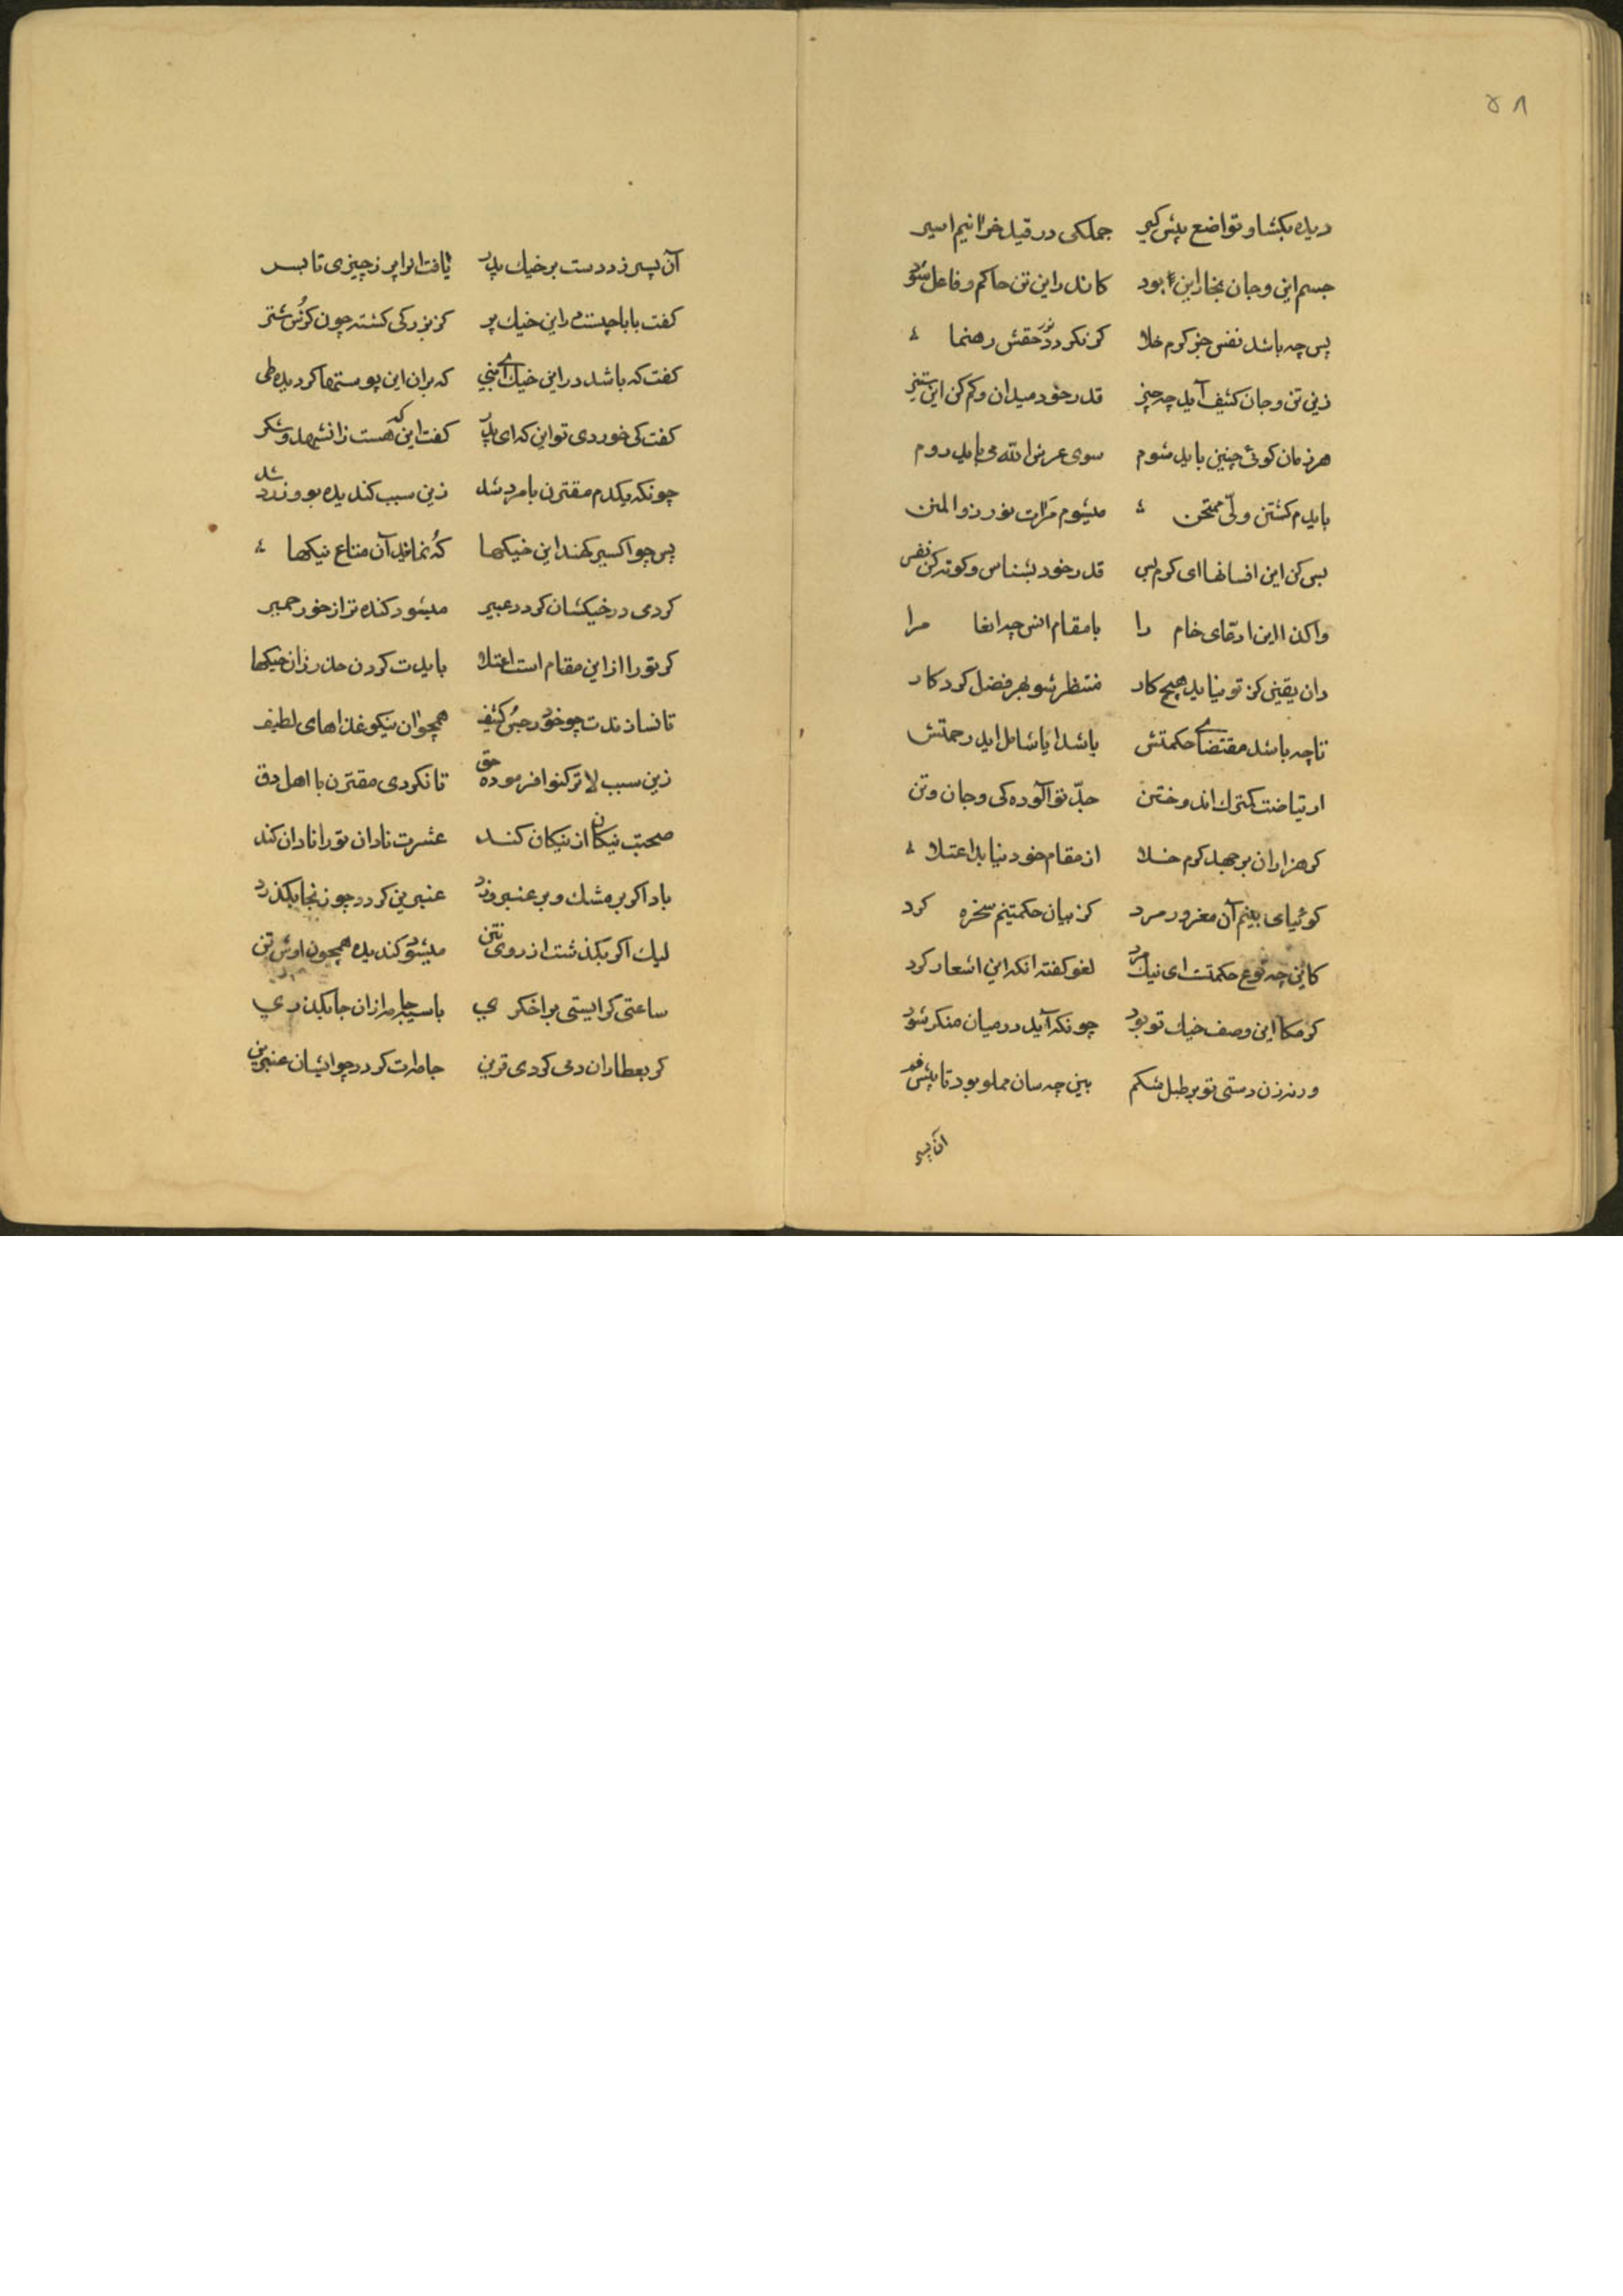 ۵۸
دیده بکشا و تواضع پیش کیر جملکی در قید خر اینم اسیر
جسم این و جان بخار این بود کاندر این تن حاکم و فاعل شود
پس چه باشد نفس جز کرم خلا کر نکردد نور حقش رهنما
زین تن و جان کثیف آید چه چیز قدر خود میدان و کم کن این ستیز
هر زمان کوئی چنین باید شوم سوی عرش الله می باید روم
بایدم کشتن ولی ممتحن میشوم مرآت نور ذوالمنن
بس کن این افسانها ای کرم پس قدر خود بشناس و کوته کن نفس
واکذا این ادعای خام را با مقام انس چه انها مرا
دان یقین کز تو نیاید هیچ کار منتظر شو بهر فضل کردکار
تا چه باشد مقتضای حکمتش باشد آیا شامل اید رحمتش
ارتیاضت کترک اندوختن جد تو آلوده کی و جان و تن
کر هزاران بر جهد کرم خلا از مقام خود نیابد اعتلا
کوئیای بینم آن مغرور مرد کز بیان حکمتینم سخره کرد
کاین چه نوع حکمتست ای نیک مرد لغو کفته انکه این اشعار کرد
کر مکا این وصف خیک تو بود چونکه آید در میان منکر شود
ورنه زن دستی تو بر طبل شکم بین چه سان مملو بود تا پیش فم
آن پسر
آن پسر زد دست بر خیک پدر یافت انرا پر ز چیزی تا بسر
کفت بابا چیست در این خیک پر کز بزرکی کشته چون کرش شتر
کفت که باشد در این خیک ای بنی که بران این پوستها کردیده طی
کفت کی خوردی تو این که ای پدر کفت این که هست زانشهد و شکر
چونکه یکدم مقترن با مرد شد زین سبب کندیده بو و زرد شد
پس چو اکسیر کهند این خیکها که نماند آن متاع نیکها
کر دمی در خیکشان کردد عبیر میشود کنده تر از خود خمیر
کر تو را از این مقام است اعتلا بایدت کردن حذر زان خیکها
تا نسازندت چو خود رجس کثیف همچو ان نیکو غذاهای لطیف
زین سبب لا ترکنوا فرموده حق تا نکردی مقترن با اهل دق
صحبت نیکان از نیکان کند عشرت نادان تو را نادان کند
باد اکر بر مشک و بر عنبر وزد عنبرین کردد چو زنجا بکذرد
لیک اکر بکذشت از روی نتن میشود کندیده همچون اوش تن
ساعتی کر ایستی بر اخکری با سیه جامه از ان جا بکذری
کر بعطاران دمی کردی قرین جامه‌ات کردد چو ایشان عنبرین